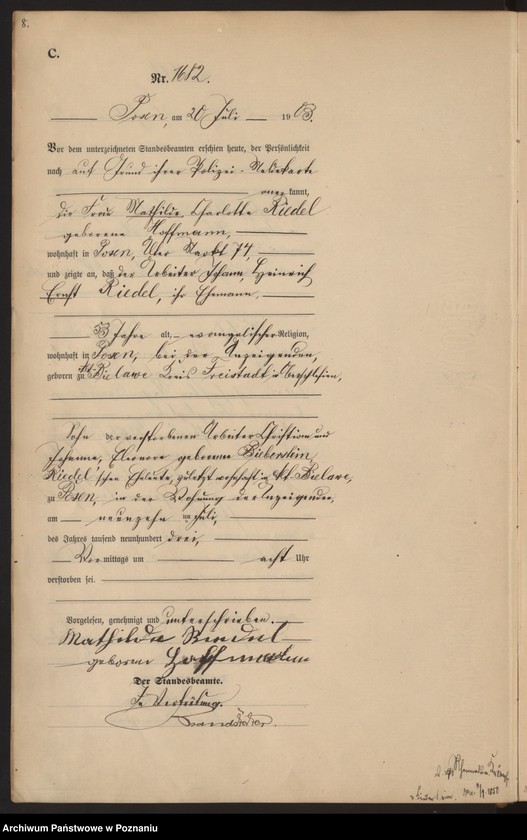 8.
C.
Nr. 1682.
Posen, am 20 Juli 1903.
Vor dem unterzeichneten Standesbeamten erschien heute, der Persönlichkeit
nach auf Grund ihrer Polizei-Meldekarte
anerkannt,
die Frau Mathilde Charlotte Riedel
geborene Hoffmann,
wohnhaft in Posen, Alter Markt 74,
und zeigte an, daß der Arbeiter Johann, Heinrich
Ernst Riedel, ihr Ehemann,
53 Jahre alt, evangelischer Religion,
wohnhaft in Posen, bei der Anzeigenden,
geboren zu Alt-Bielawe Kreis Freistadt
Sohn der verstorbenen Arbeiter Christian und
Johanne, Eleonore geborene Bieberstein,
Riedel'schen Eheleute, zuletzt wohnhaft in Alt Bielawe,
zu Posen, in der Wohnung der Anzeigenden,
am neunzehnten Juli,
des Jahres tausend neunhundert drei,
Vormittags um acht Uhr
verstorben sei.
Vorgelesen, genehmigt und unterschrieben.
Mathilde Riedel
geborene Hoffmann
Der Standesbeamte.
In Vertretung.
Archiwum Państwowe w Poznaniu